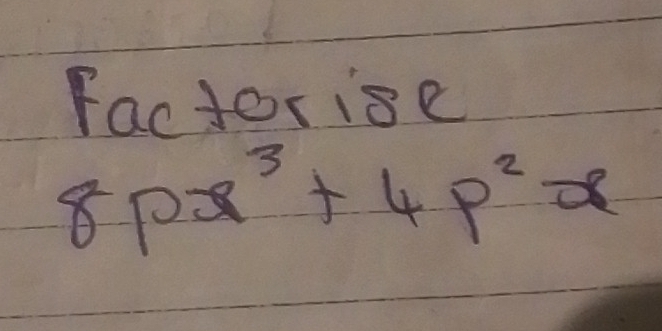 Factorise
8px³ + 4p²x